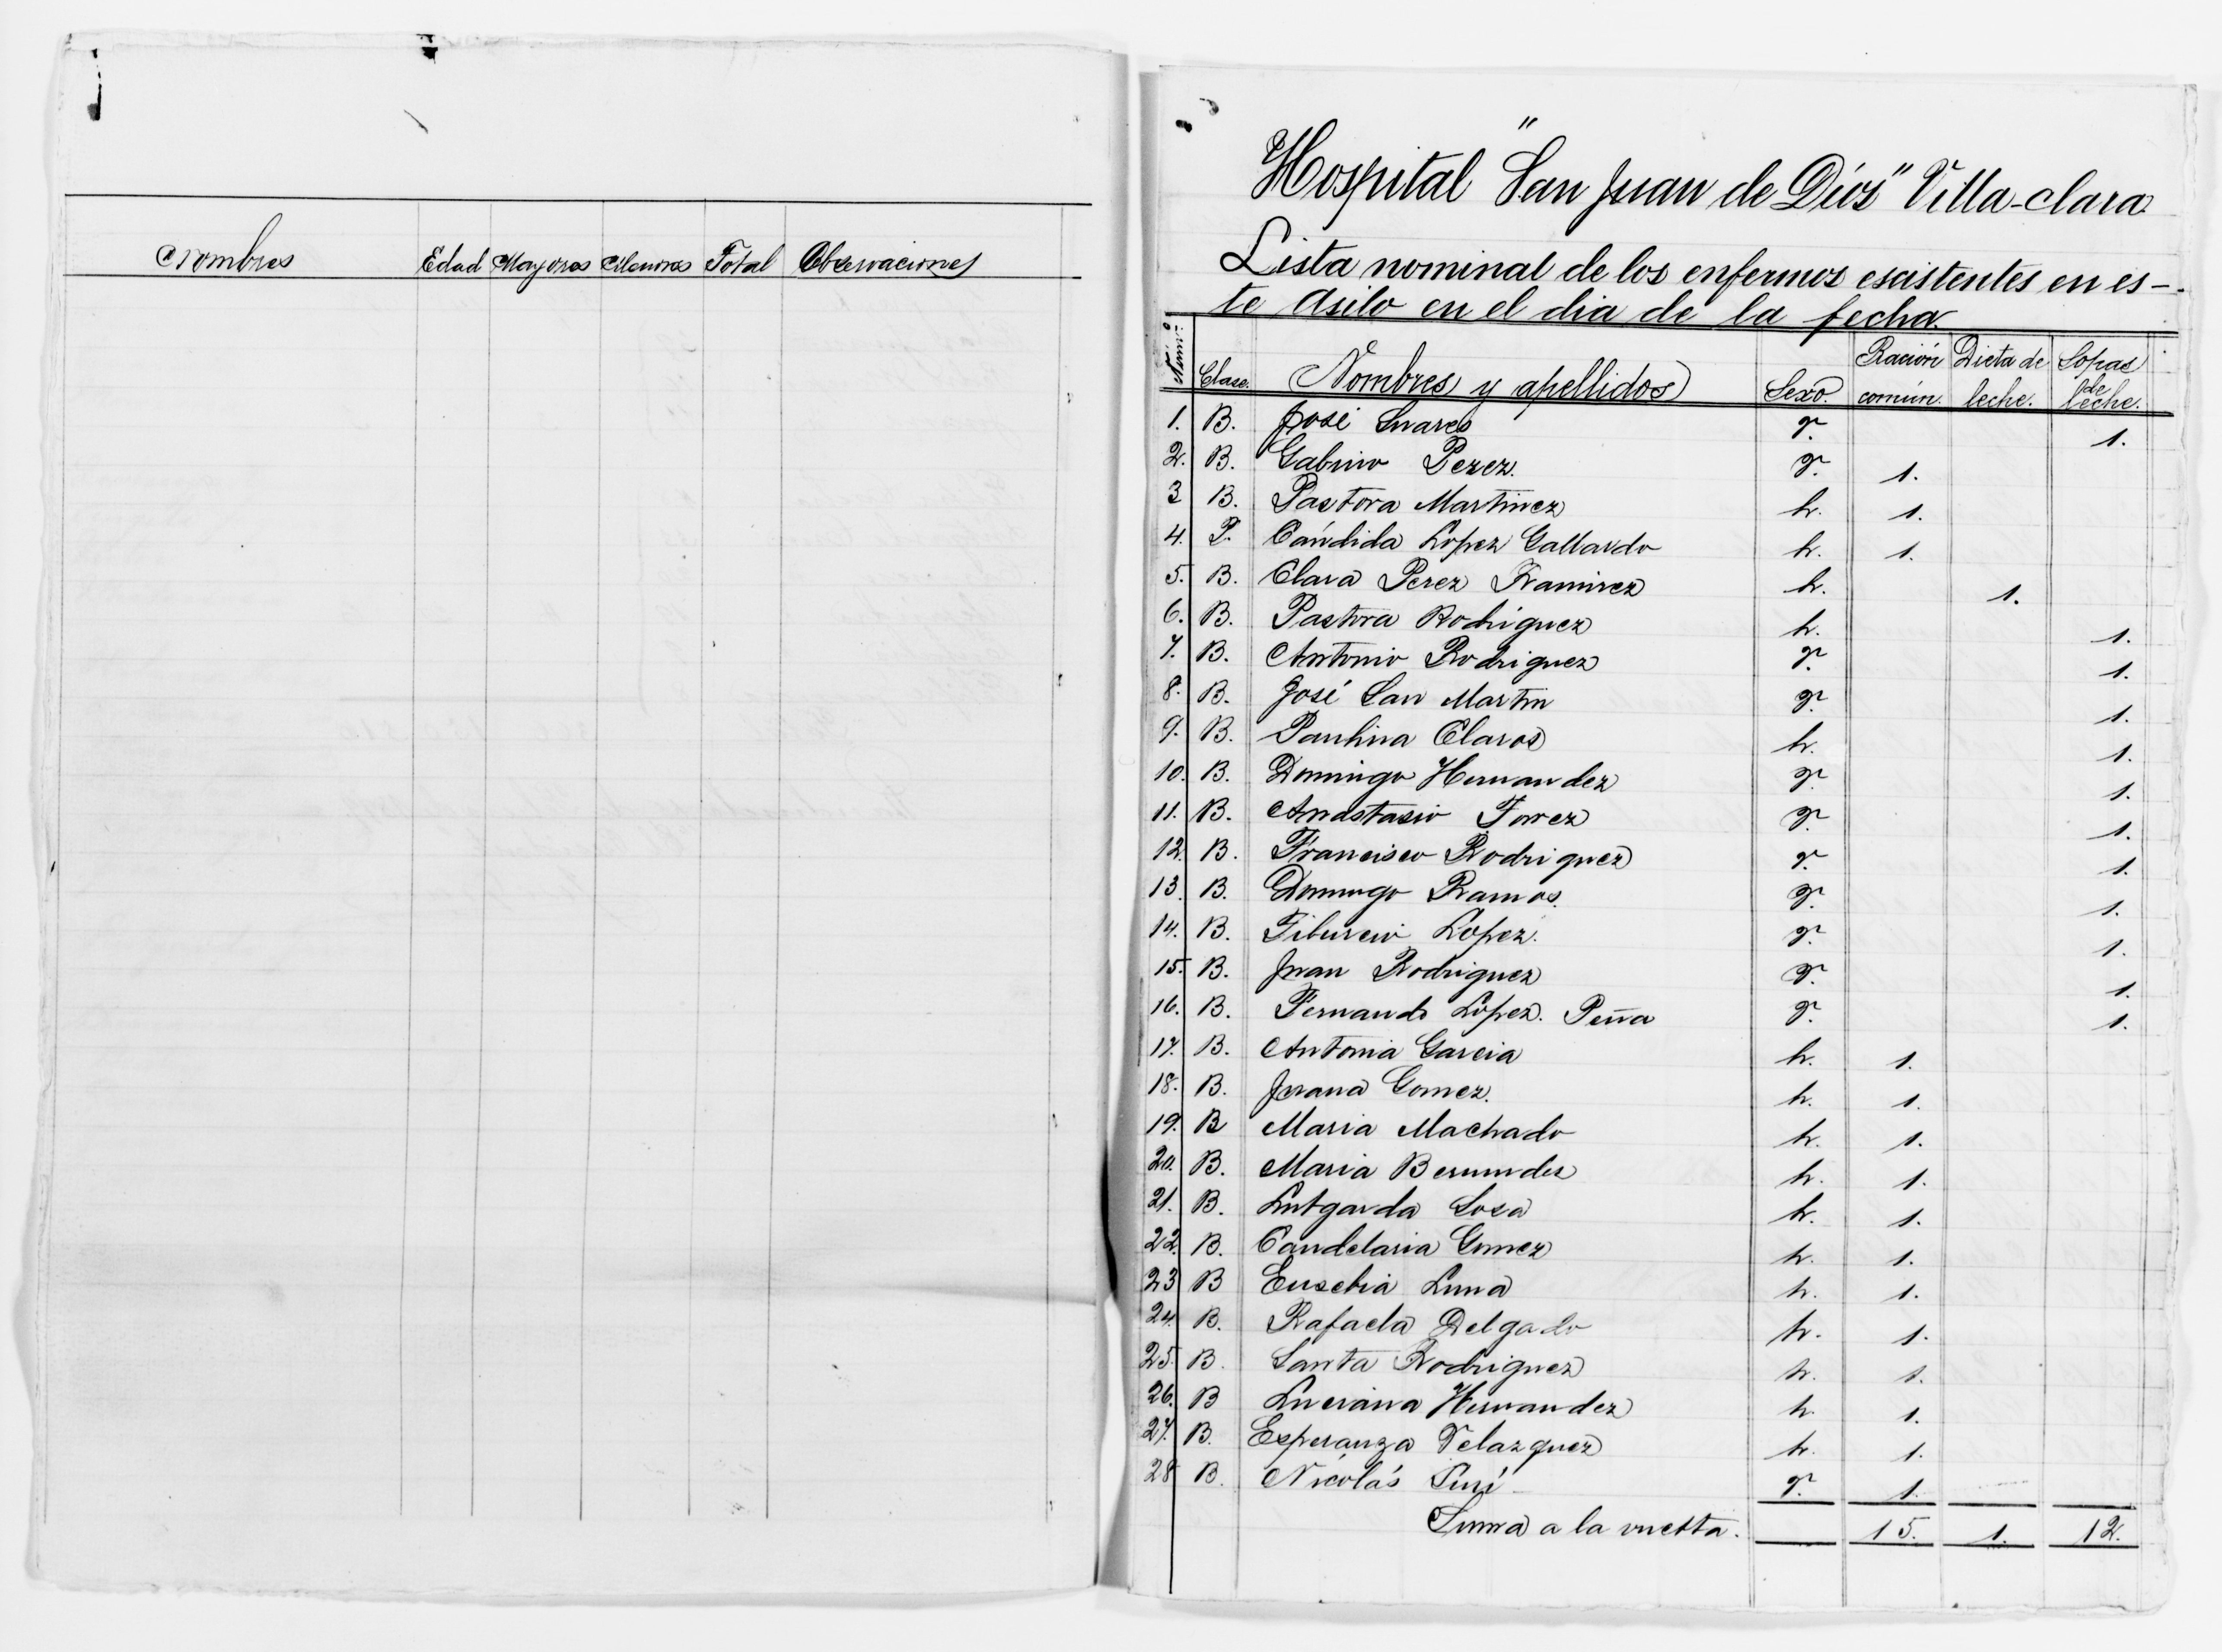 Nombres Edad Mayores Menores Total Observaciones
Hospital "San Juan de Dios" Villa-clara.
Lista nominal de los enfermos escistentes en es-
te Asilo en el dia de la fecha.
Núm.º Clase. Nombres y apellidos Sexo. Ración común. Dieta de leche. Sopas de leche.
1. B. José Suares v. 1.
2. B. Gabino Perez. v. 1.
3 B. Pastora Martinez h. 1.
4. P. Cándida López Gallardo h. 1.
5. B. Clara Perez Ramirez h. 1.
6. B. Pastora Rodriguez h. 1.
7. B. Antonio Rodriguez v. 1.
8. B. José San Martin v. 1.
9. B. Paulina Claros h. 1.
10. B. Domingo Hernandez v. 1.
11. B. Anastasio Torrez v. 1.
12. B. Francisco Rodriguez v. 1.
13. B. Domingo Ramos. v. 1.
14. B. Tiburcio Lopez. v. 1.
15. B. Juan Rodriguez v. 1.
16. B. Fernando López. Peña v. 1.
17. B. Antonia Garcia h. 1.
18. B. Juana Gomez. h. 1.
19. B Maria Machado h. 1.
20. B. Maria Bermudez h. 1.
21. B. Lutgarda Sosa h. 1.
22. B. Candelaria Gomez h. 1.
23 B Eusebia Luna h. 1.
24. B. Rafaela Delgado h. 1.
25. B. Santa Rodriguez h. 1.
26. B Luciana Hernandez h. 1.
27. B. Esperanza Velazquez h. 1.
28 B. Nicolás v. 1.
Suma a la vuelta. 15. 1. 12.